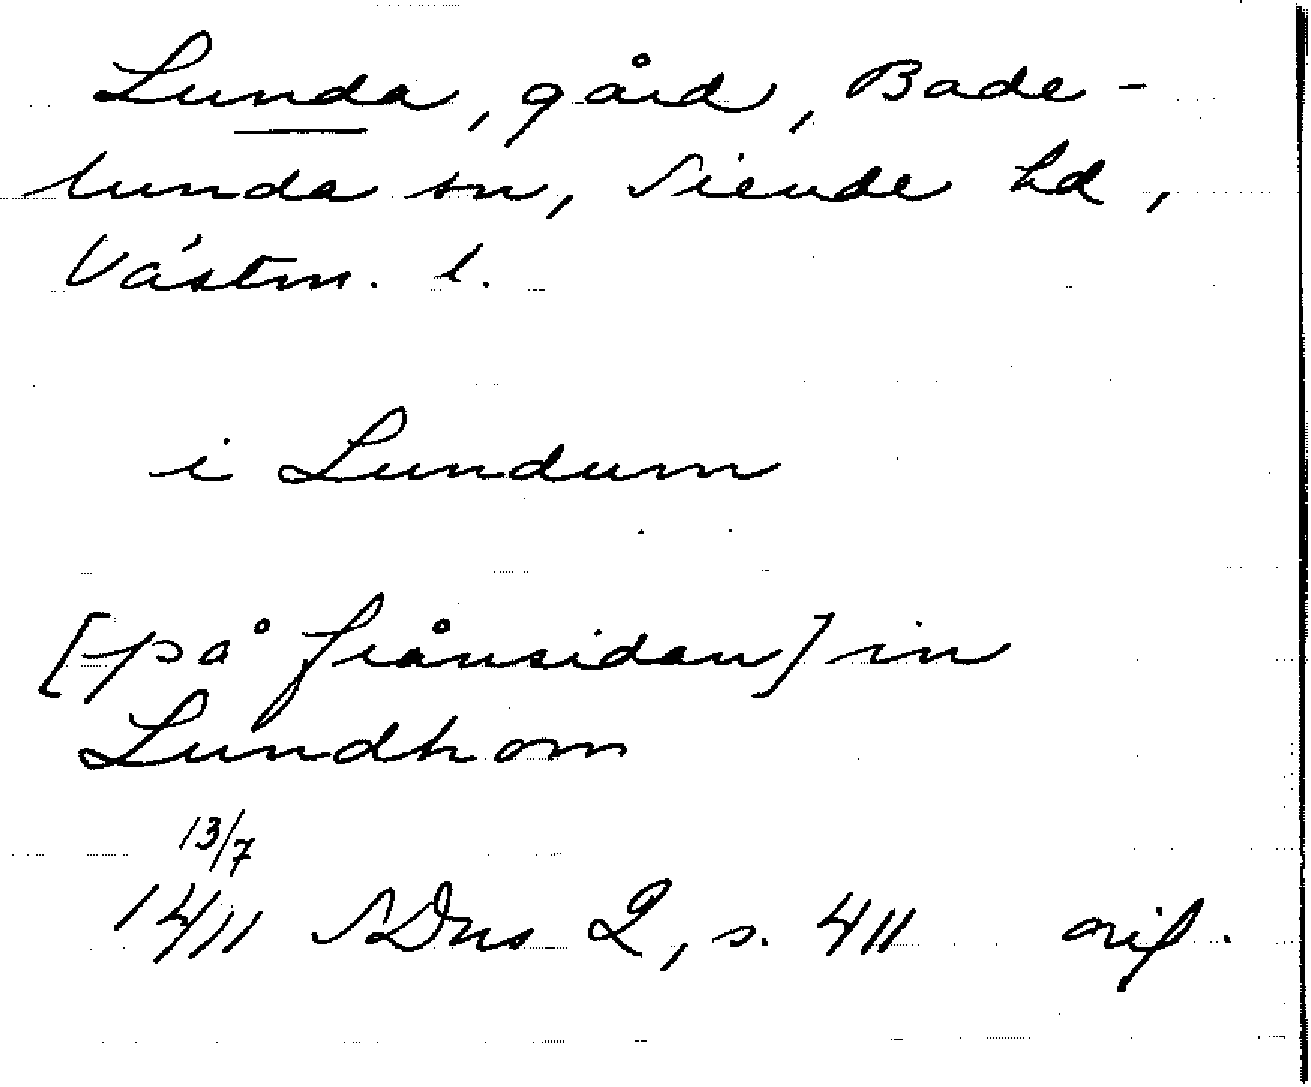 Lunda, gård, Bade-
lunda sn, Siende hd,
Västm. l.
i Lundum
[på frånsidan] in
Lundhom
13/7
1411 SDns 2, s. 411 orig.